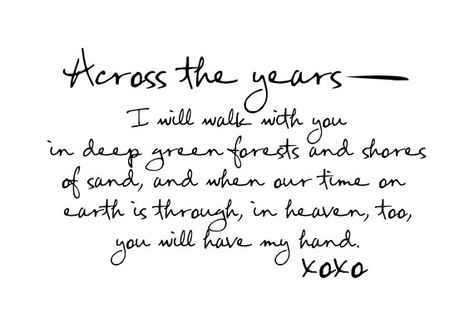 Across the years—
I will walk with you
in deep green forests and shores
of sand, and when our time on
earth is through, in heaven, too,
you will have my hand.
xoxo